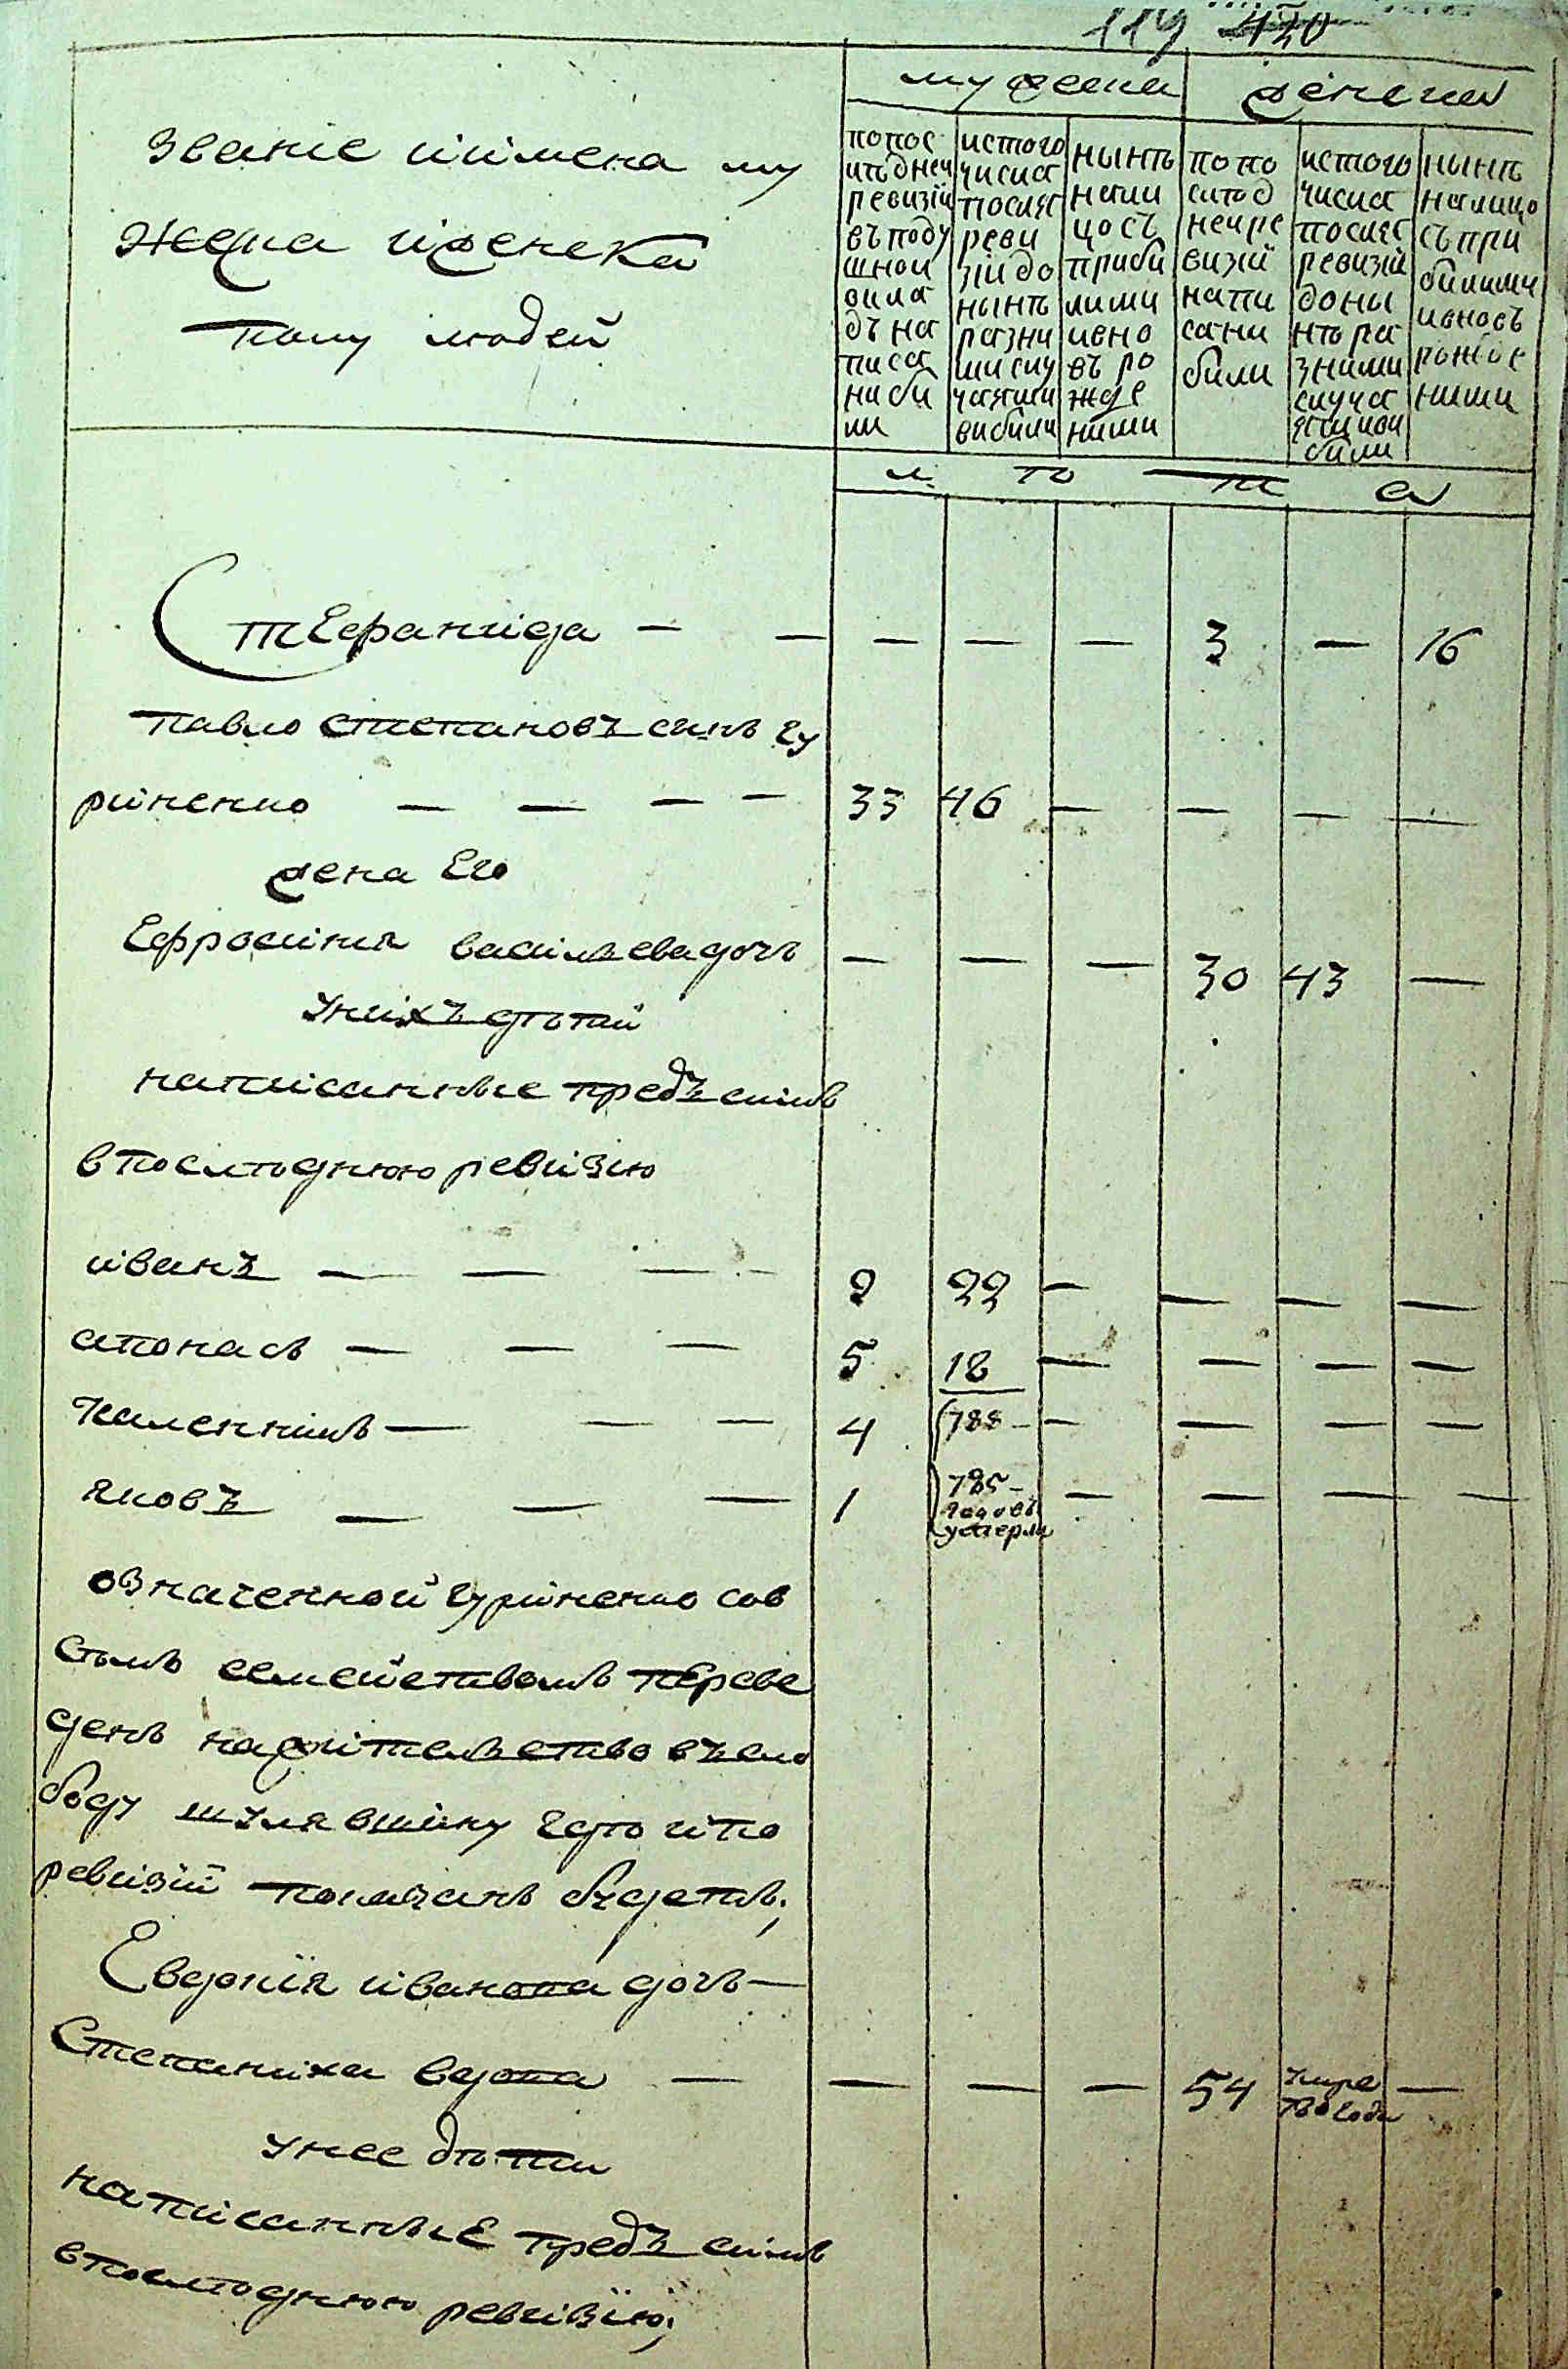 119 420
мужеска женска
званіе иімена му
жеска иженска
полу людей
попос
лѣдней
ревизіи
въподу
шной
окла
дъ на
писа
ни би
ли
истого
числа
послѣ
реви
зіи до
нынѣ
разни
ми слу
чаями
вибили
нынѣ
нали
цосъ
приби
лими
ивно
въ ро
жде
ними
попо
слѣд
ней ре
визіи
напи
сани
били
истого
числа
послѣ
ревизіи
дони
нѣ ра
зними
случа
ями иви
били
нынѣ
налицо
съ при
билими
ивновъ
рожде
ними
л ѣ т а
Стефанида — — — — — 3 — 16
павло степановъ синъ гу
риненко — — — — 33 46 — — — —
жена Его
Ефросиния василъева дочъ — — — 30 43 —
унихъ дѣтей
написанные предъ симъ
впослѣднюю ревизию
иванъ — — — — 9 22 — — — —
апонасъ — — — 5 18 — — — —
Калениикъ — — — 4 788 — — — — —
яковъ — — — 1 785 — — — — —
годовъ
умерли
означенной гуриненко сов
сѣмъ семействомъ переве
денъ нажителъство въсло
боду шулявшину гдѣ ипо
ревизіи показанъ будетъ;
Евдокия иванова дочъ —
Степаниха вдова — — — — 54 умре —
780 года
унее дѣти
написанные предъ симъ
впослѣднюю ревизию;